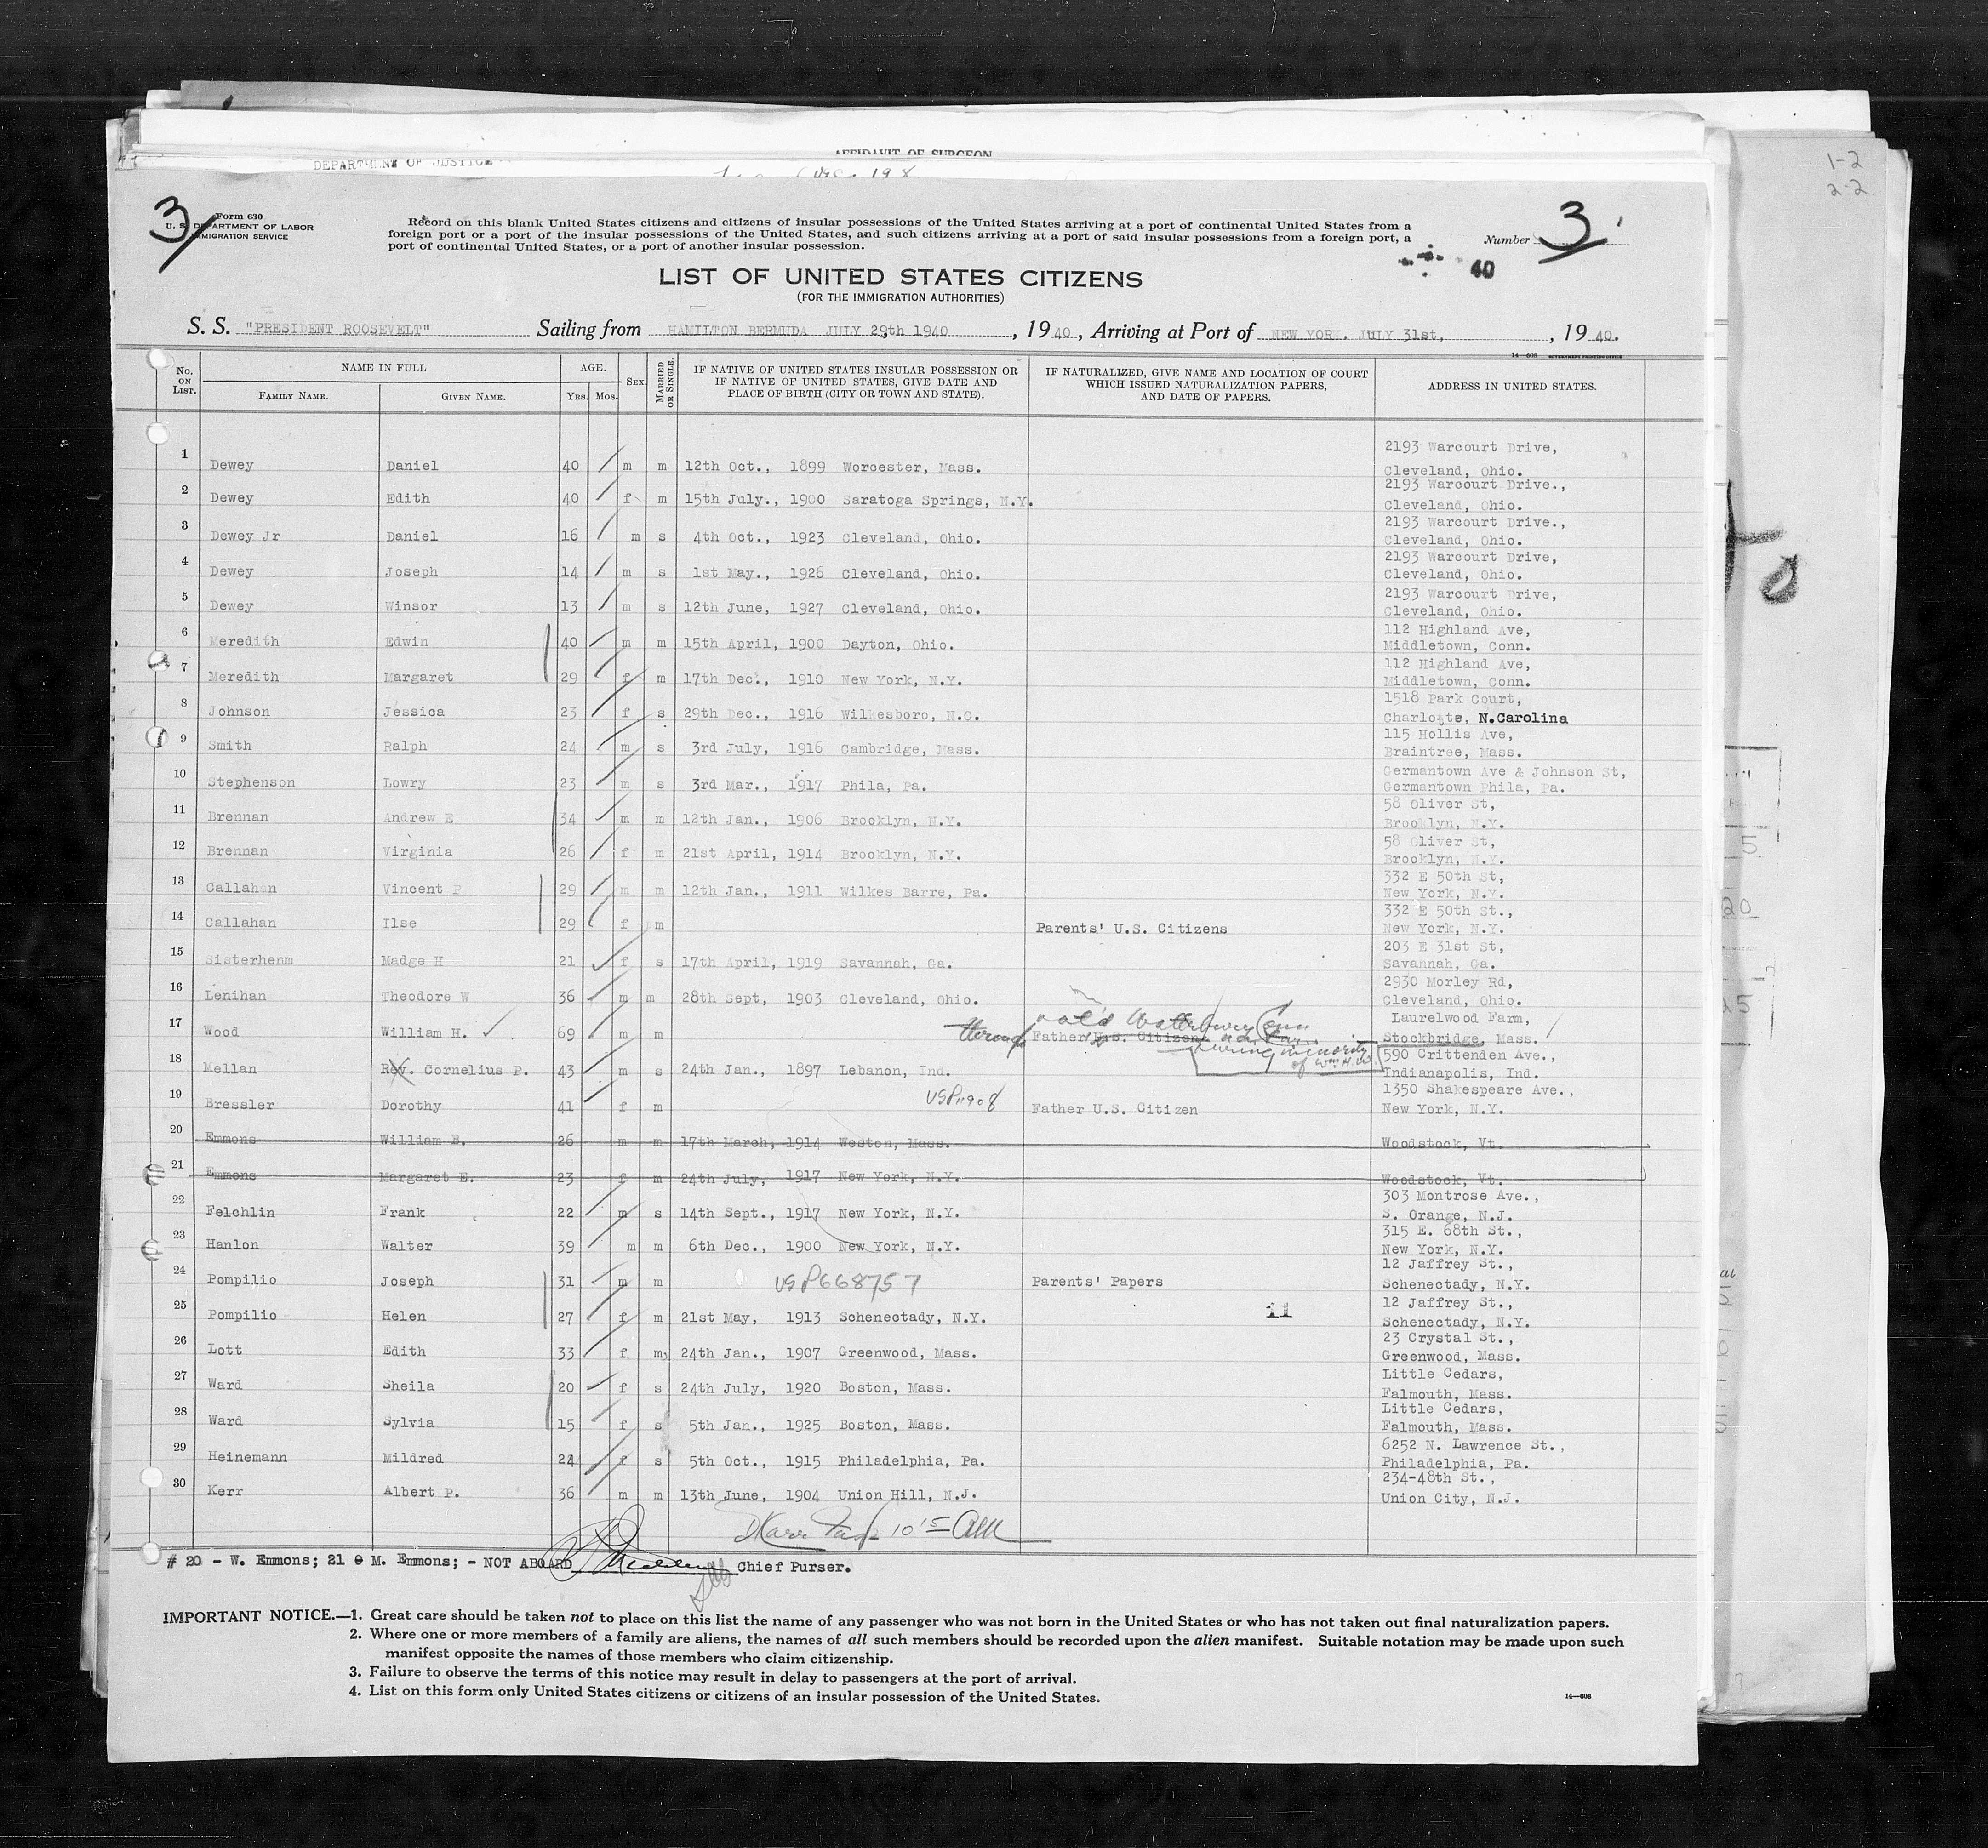 AFFIDAVIT OF SURGEON
DEPARTMENT OF JUSTICE
1-2
2-2
3
Form 630
U. S. DEPARTMENT OF LABOR
IMMIGRATION SERVICE
Record on this blank United States citizens and citizens of insular possessions of the United States arriving at a port of continental United States from a
foreign port or a port of the insular possessions of the United States, and such citizens arriving at a port of said insular possessions from a foreign port, a
port of continental United States, or a port of another insular possession.
Number 3
40
LIST OF UNITED STATES CITIZENS
(FOR THE IMMIGRATION AUTHORITIES)
S. S. "PRESIDENT ROOSEVELT" Sailing from HAMILTON BERMUDA JULY 29th 1940, 1940, Arriving at Port of NEW YORK. JULY 31st, , 1940.
14—608 GOVERNMENT PRINTING OFFICE
No. ON LIST. NAME IN FULL FAMILY NAME. GIVEN NAME. AGE. YRS. MOS. SEX. MARRIED OR SINGLE. IF NATIVE OF UNITED STATES INSULAR POSSESSION OR IF NATIVE OF UNITED STATES, GIVE DATE AND PLACE OF BIRTH (CITY OR TOWN AND STATE). IF NATURALIZED, GIVE NAME AND LOCATION OF COURT WHICH ISSUED NATURALIZATION PAPERS, AND DATE OF PAPERS. ADDRESS IN UNITED STATES.
1 Dewey Daniel 40 m m 12th Oct., 1899 Worcester, Mass. 2193 Warcourt Drive, Cleveland, Ohio.
2 Dewey Edith 40 f m 15th July., 1900 Saratoga Springs, N.Y. 2193 Warcourt Drive., Cleveland, Ohio.
3 Dewey Jr Daniel 16 m s 4th Oct., 1923 Cleveland, Ohio. 2193 Warcourt Drive., Cleveland, Ohio.
4 Dewey Joseph 14 m s 1st May., 1926 Cleveland, Ohio. 2193 Warcourt Drive, Cleveland, Ohio.
5 Dewey Winsor 13 m s 12th June, 1927 Cleveland, Ohio. 2193 Warcourt Drive, Cleveland, Ohio.
6 Meredith Edwin 40 m m 15th April, 1900 Dayton, Ohio. 112 Highland Ave, Middletown, Conn.
7 Meredith Margaret 29 f m 17th Dec., 1910 New York, N.Y. 112 Highland Ave, Middletown, Conn.
8 Johnson Jessica 23 f s 29th Dec., 1916 Wilkesboro, N.C. 1518 Park Court, Charlotte, N.Carolina
9 Smith Ralph 24 m s 3rd July, 1916 Cambridge, Mass. 115 Hollis Ave, Braintree, Mass.
10 Stephenson Lowry 23 m s 3rd Mar., 1917 Phila, Pa. Germantown Ave & Johnson St, Germantown Phila, Pa.
11 Brennan Andrew E 34 m m 12th Jan., 1906 Brooklyn, N.Y. 58 Oliver St, Brooklyn, N.Y.
12 Brennan Virginia 26 f m 21st April, 1914 Brooklyn, N.Y. 58 Oliver St, Brooklyn, N.Y.
13 Callahan Vincent P 29 m m 12th Jan., 1911 Wilkes Barre, Pa. 332 E 50th St, New York, N.Y.
14 Callahan Ilse 29 f m Parents' U.S. Citizens 332 E 50th St., New York, N.Y.
15 Sisterhenm Madge H 21 f s 17th April, 1919 Savannah, Ga. 203 E 31st St, Savannah, Ga.
16 Lenihan Theodore W 36 m m 28th Sept, 1903 Cleveland, Ohio. 2930 Morley Rd, Cleveland, Ohio.
17 Wood William H. 69 m m through Father U.S. Citizen nat'd Waterbury Conn during minority of Wm H.W. Laurelwood Farm, Stockbridge, Mass.
18 Mellan Rev. Cornelius P. 43 m s 24th Jan., 1897 Lebanon, Ind. 590 Crittenden Ave., Indianapolis, Ind.
19 Bressler Dorothy 41 f m Father U.S. Citizen 1350 Shakespeare Ave., New York, N.Y.
20 Emmons William B. 26 m m 17th March, 1914 Weston, Mass. Woodstock, Vt.
21 Emmons Margaret E. 23 f m 24th July, 1917 New York, N.Y. Woodstock, Vt.
22 Felchlin Frank 22 m s 14th Sept., 1917 New York, N.Y. 303 Montrose Ave., S. Orange, N.J.
23 Hanlon Walter 39 m m 6th Dec., 1900 New York, N.Y. 315 E. 68th St., New York, N.Y.
24 Pompilio Joseph 31 m m USP668757 Parents' Papers 12 Jaffrey St., Schenectady, N.Y.
25 Pompilio Helen 27 f m 21st May, 1913 Schenectady, N.Y. 11 12 Jaffrey St., Schenectady, N.Y.
26 Lott Edith 33 f m 24th Jan., 1907 Greenwood, Mass. 23 Crystal St., Greenwood, Mass.
27 Ward Sheila 20 f s 24th July, 1920 Boston, Mass. Little Cedars, Falmouth, Mass.
28 Ward Sylvia 15 f s 5th Jan., 1925 Boston, Mass. Little Cedars, Falmouth, Mass.
29 Heinemann Mildred 24 f s 5th Oct., 1915 Philadelphia, Pa. 6252 N. Lawrence St., Philadelphia, Pa.
30 Kerr Albert P. 36 m m 13th June, 1904 Union Hill, N.J. 234-48th St., Union City, N.J.
# 20 - W. Emmons; 21 M. Emmons; - NOT ABOARD Chief Purser.
IMPORTANT NOTICE.—1. Great care should be taken not to place on this list the name of any passenger who was not born in the United States or who has not taken out final naturalization papers.
2. Where one or more members of a family are aliens, the names of all such members should be recorded upon the alien manifest. Suitable notation may be made upon such
manifest opposite the names of those members who claim citizenship.
3. Failure to observe the terms of this notice may result in delay to passengers at the port of arrival.
4. List on this form only United States citizens or citizens of an insular possession of the United States.
14—608